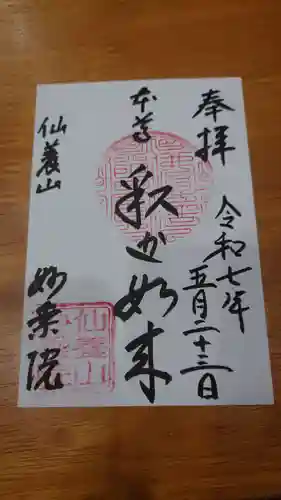 奉拝
令和七年
五月二十三日
本尊
釈迦如来
仙養山
妙乗院
仙養山